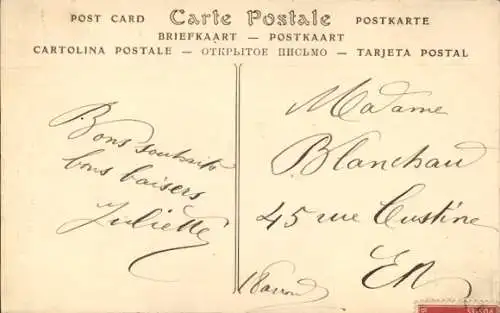 POST CARD Carte Postale POSTKARTE
BRIEFKAART — POSTKAART
CARTOLINA POSTALE — ОТКРЫТОЕ ПИСЬМО — TARJETA POSTAL
Bons souhaits
bons baisers
Juliette
Madame
Blanchau
45 rue Custine
EV
18 arrond